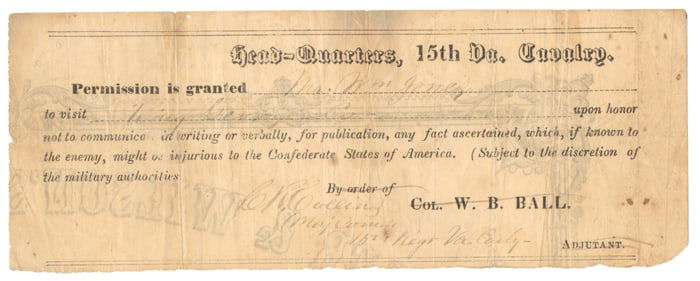 Head-Quarters, 15th Va. Cavalry.
Permission is granted Mr. Wm Jones
to visit King George upon honor
not to communica in writing or verbally, for publication, any fact ascertained, which, if known to
the enemy, might be injurious to the Confederate States of America. (Subject to the discretion of
the military authorities
By order of
C R Collins COL. W. B. BALL.
Maj Comdg
15th Regt Va Cavly
ADJUTANT.